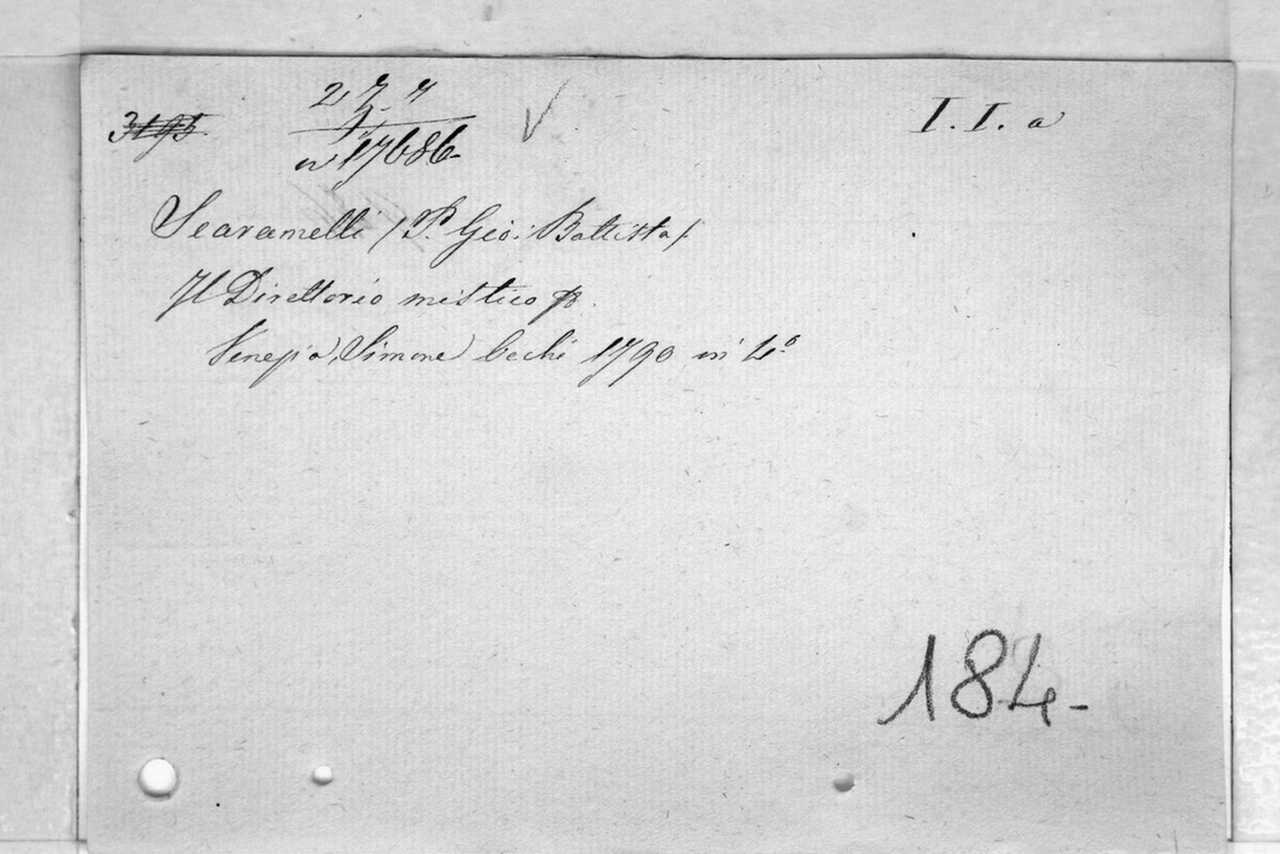 3195
I. I. a
n 17686
Scaramelli /P. Gio: Battista/
Il Direttorio mistico
Venezia, Simone Occhi 1790 in 4º
184-